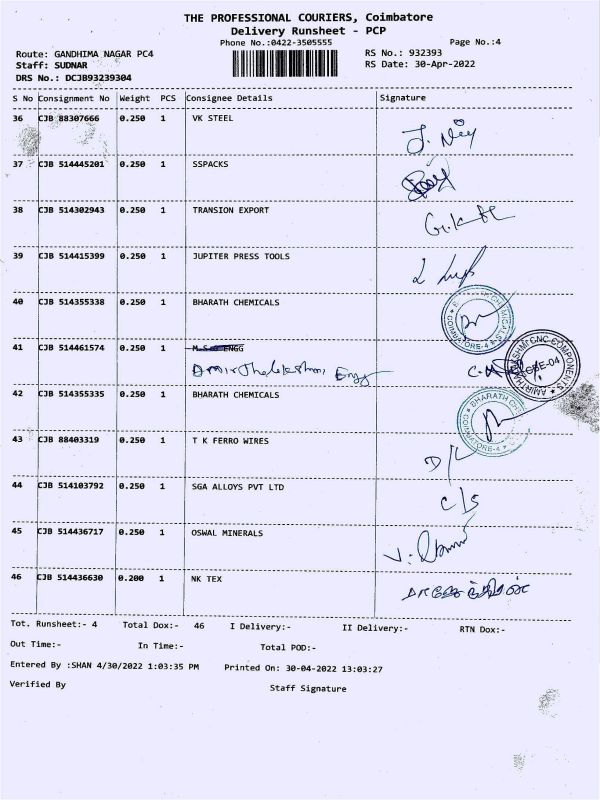 THE PROFESSIONAL COURIERS, Coimbatore
Delivery Runsheet - PCP
Phone No.:0422-3505555
Page No.:4
Route: GANDHIMA NAGAR PC4
RS No.: 932393
Staff: SUDNAR
RS Date: 30-Apr-2022
DRS No.: DCJB93239304
S No Consignment No Weight PCS Consignee Details Signature
36 CJB 88307666 0.250 1 VK STEEL
37 CJB 514445201 0.250 1 SSPACKS
38 CJB 514302943 0.250 1 TRANSION EXPORT
39 CJB 514415399 0.250 1 JUPITER PRESS TOOLS
40 CJB 514355338 0.250 1 BHARATH CHEMICALS
CHEMICALS ★ COIMBATORE-4 ★
41 CJB 514461574 0.250 1 ENGG
Engg
CNC COMPONENTS ★
CBE-04
42 CJB 514355335 0.250 1 BHARATH CHEMICALS
★ BHARATH
COIMBATORE-4 ★
43 CJB 88403319 0.250 1 T K FERRO WIRES
44 CJB 514103792 0.250 1 SGA ALLOYS PVT LTD
45 CJB 514436717 0.250 1 OSWAL MINERALS
46 CJB 514436630 0.200 1 NK TEX
Tot. Runsheet:- 4 Total Dox:- 46 I Delivery:- II Delivery:- RTN Dox:-
Out Time:- In Time:- Total POD:-
Entered By :SHAN 4/30/2022 1:03:35 PM Printed On: 30-04-2022 13:03:27
Verified By Staff Signature